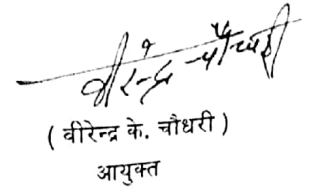 वीरेन्द्र चौधरी
( वीरेन्द्र के. चौधरी )
आयुक्त